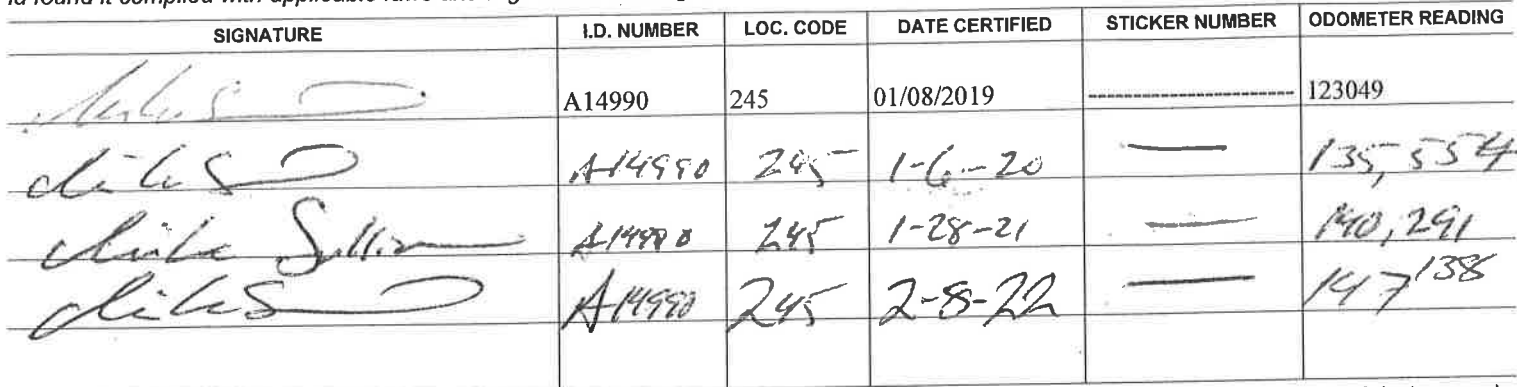 id found it complied with applicable laws and
SIGNATURE I.D. NUMBER LOC. CODE DATE CERTIFIED STICKER NUMBER ODOMETER READING
A14990 245 01/08/2019 ------------------------ 123049
A14990 245 1-6-20 — 135,554
Mike Sullivan A14990 245 1-28-21 — 140,291
A14990 245 2-8-22 — 147138